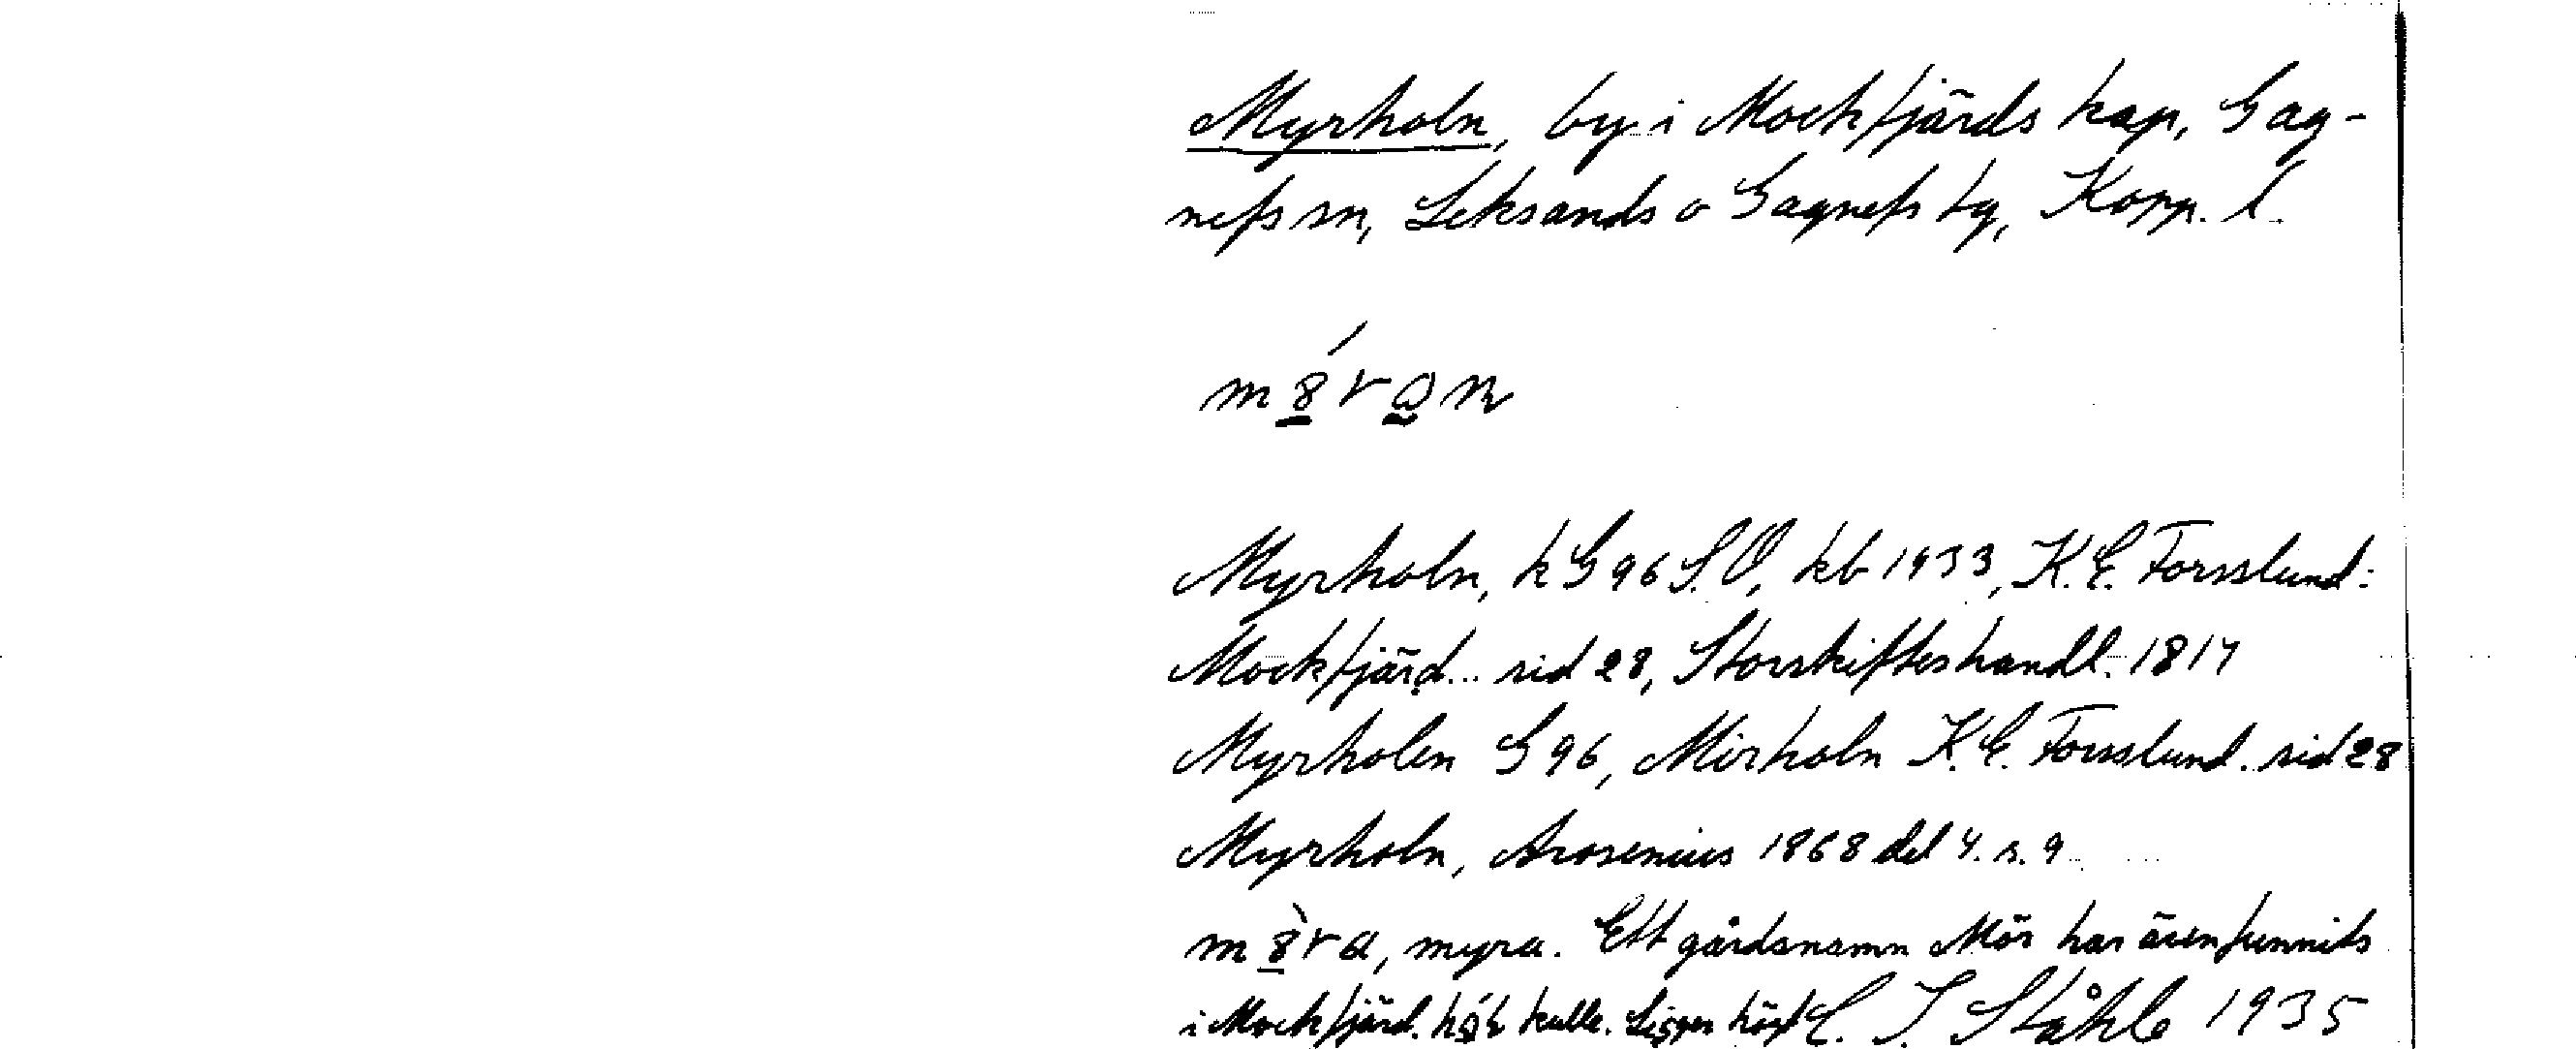 Myrholn, by i Mockfjärds kap, Gag-
nefs sn, Leksands o Gagnefs tg, Kopp. l.
Myrholn, k G 96 S.O, kb 1933, K.E. Forsslund:
Mockfjärd... sid 28, Storskifteshandl. 1817
Myrholen G 96, Mirholn K.E. Forsslund. sid 28
Myrholn, Arosenius 1868 del 4. s. 9
myra. Ett gårdsnamn Mör har även funnits
i Mockfjärd. kulle. Ligger högt C. I. Ståhle 1935